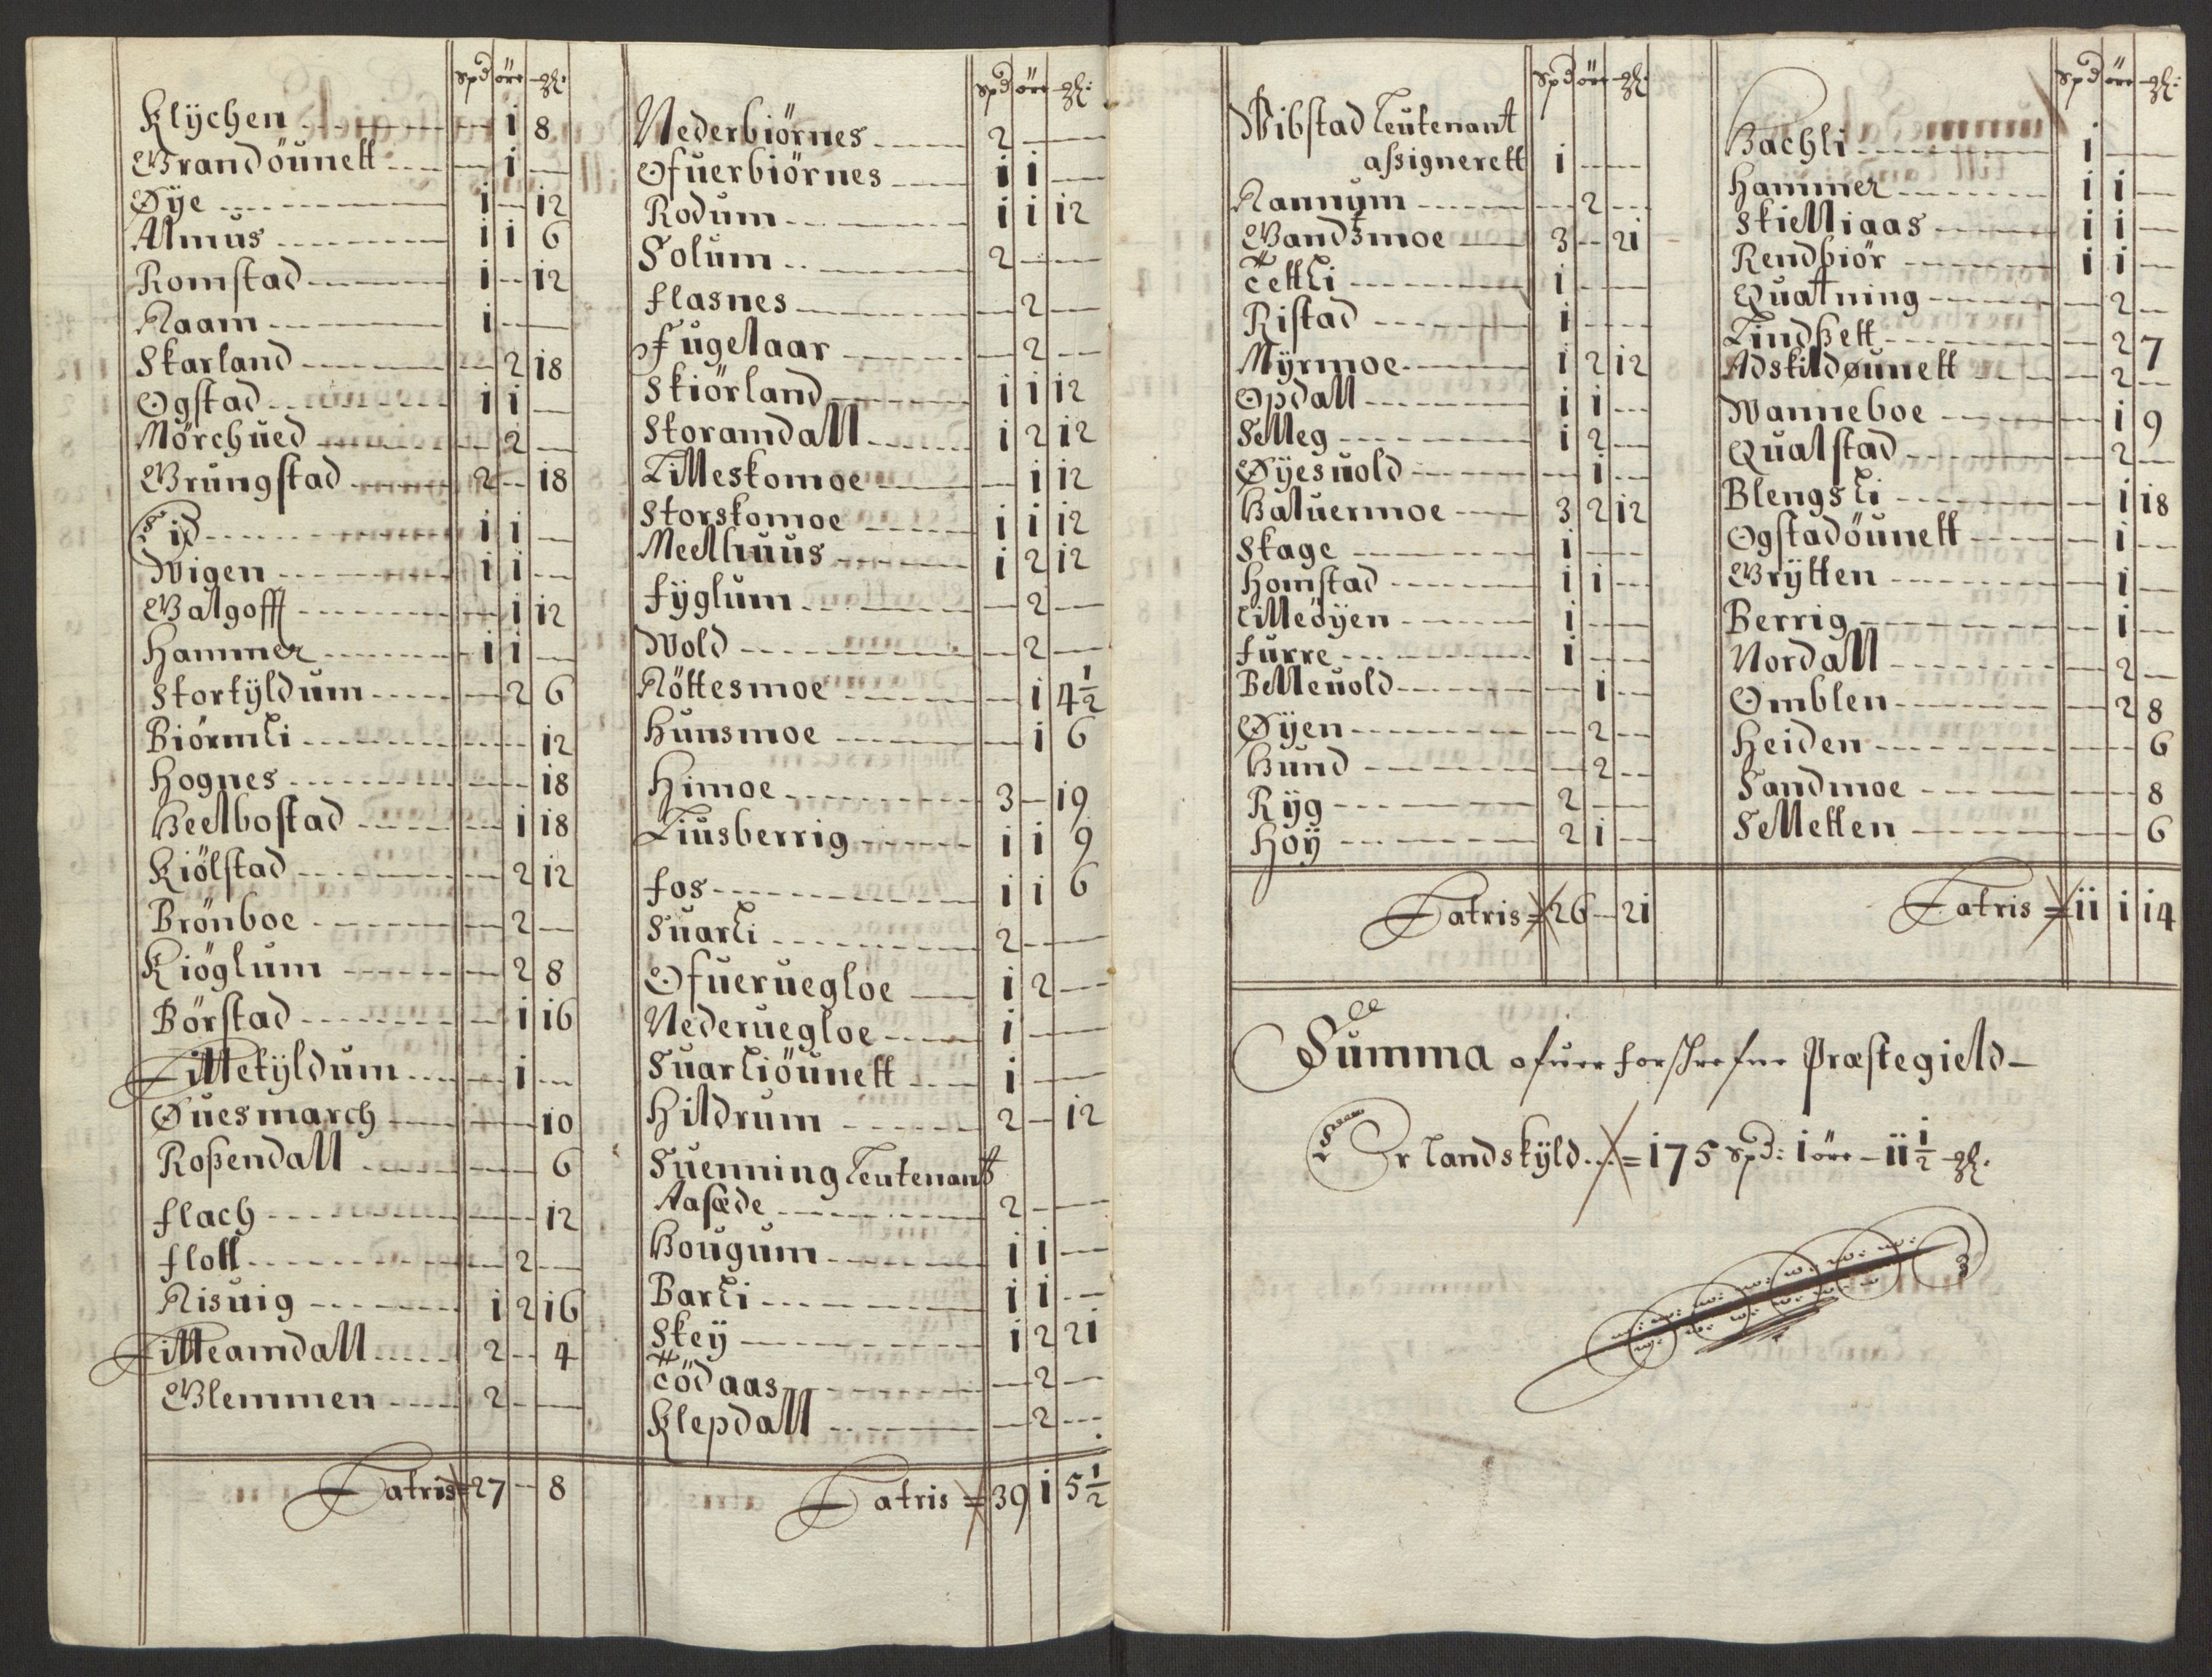 Spd öre gl:
Klÿchen - i 8
Grandöunett - i -
Øÿe i - i2
Almus i i 6
Romstad i - i2
Aaam i - -
Skarland - 2 i8
Ogstad i i -
Mörchued - 2 -
Grungstad 2 - i8
Lid i i -
Wigen i i -
Galgoff - i i2
Hammer i i -
Stortÿldum - 2 6
Biörmli - - i2
Hognes - - i8
Heelbostad - i i8
Kiölstad - 2 i2
Brönboe - 2 -
Kiöglum - 2 8
Börstad - i i6
Lilletÿldum - i -
Øuesmarch - - i0
Roßendall - - 6
Flach - - i2
Flott - 2 -
Aisuig i 2 i6
Litleamdall 2 - 4
Glemmen 2 - -
Latris = 27 - 8
Spd öre gl:
Nederbiörnes 2 - -
Ofuerbiörnes i i -
Rodum i i i2
Solum 2 - -
Flasnes - 2 -
Fugelaar - 2 -
Skiörland i i i2
Storamdall i 2 i2
Lilleskomoe - i i2
Storskomoe i i i2
Meelhuus i 2 i2
Fÿglum - 2 -
Wold - 2 -
Nöttesmoe - i 4 1/2
Hunsmoe - i 6
Himoe 3 - i9
Liusberrig i i 9
Fos i i 6
Suarli 2 - -
Ofueruegloe i 2 -
Nederuegloe i - -
Suarliöunett i - -
Hildrum 2 - i2
Suenning Leutenant
Aasæde 2 - -
Hougum i i -
Barli i i -
Skeÿ i 2 2i
Tödaas - 2 -
Klepdall - 2 -
Latris = 39 i 5 1/2
Spd öre gl:
Wibstad Leutenant
assignerett i - -
Aannum - 2 -
Gandzmoe 3 - 2i
Tetli i - -
Ristad i - -
Mÿrmoe i 2 i2
Opdall i i -
Selleg i 2 -
Øÿesuold - i -
Haluermoe 3 2 i2
Skage i - -
Homstad i i -
Lilleöÿen i - -
Furre i - -
Belleuold - i -
Øÿen - 2 -
Hund - 2 -
Rÿg 2 - -
Hoÿ 2 i -
Latris = 26 - 2i
Spd öre gl:
Bachli i - -
Hammer i i -
Skielliaas i i -
Rendbiör i i -
Quatning - 2 -
Lindßett - 2 7
Adskildøunett - 2 -
Wanneboe - i 9
Qualstad - 2 -
Blengsli - i i8
Ogstadöunett - i -
Grÿtten - i -
Berrig - i -
Nordall - 2 -
Omblen - 2 8
Heiden - - 6
Sandmoe - - 8
Selletten - - 6
Latris = ii i i4
Summa ofuer forschrefne Præstegield-
Er Landskÿld = i75 Spd: i öre - ii 1/2 gl.